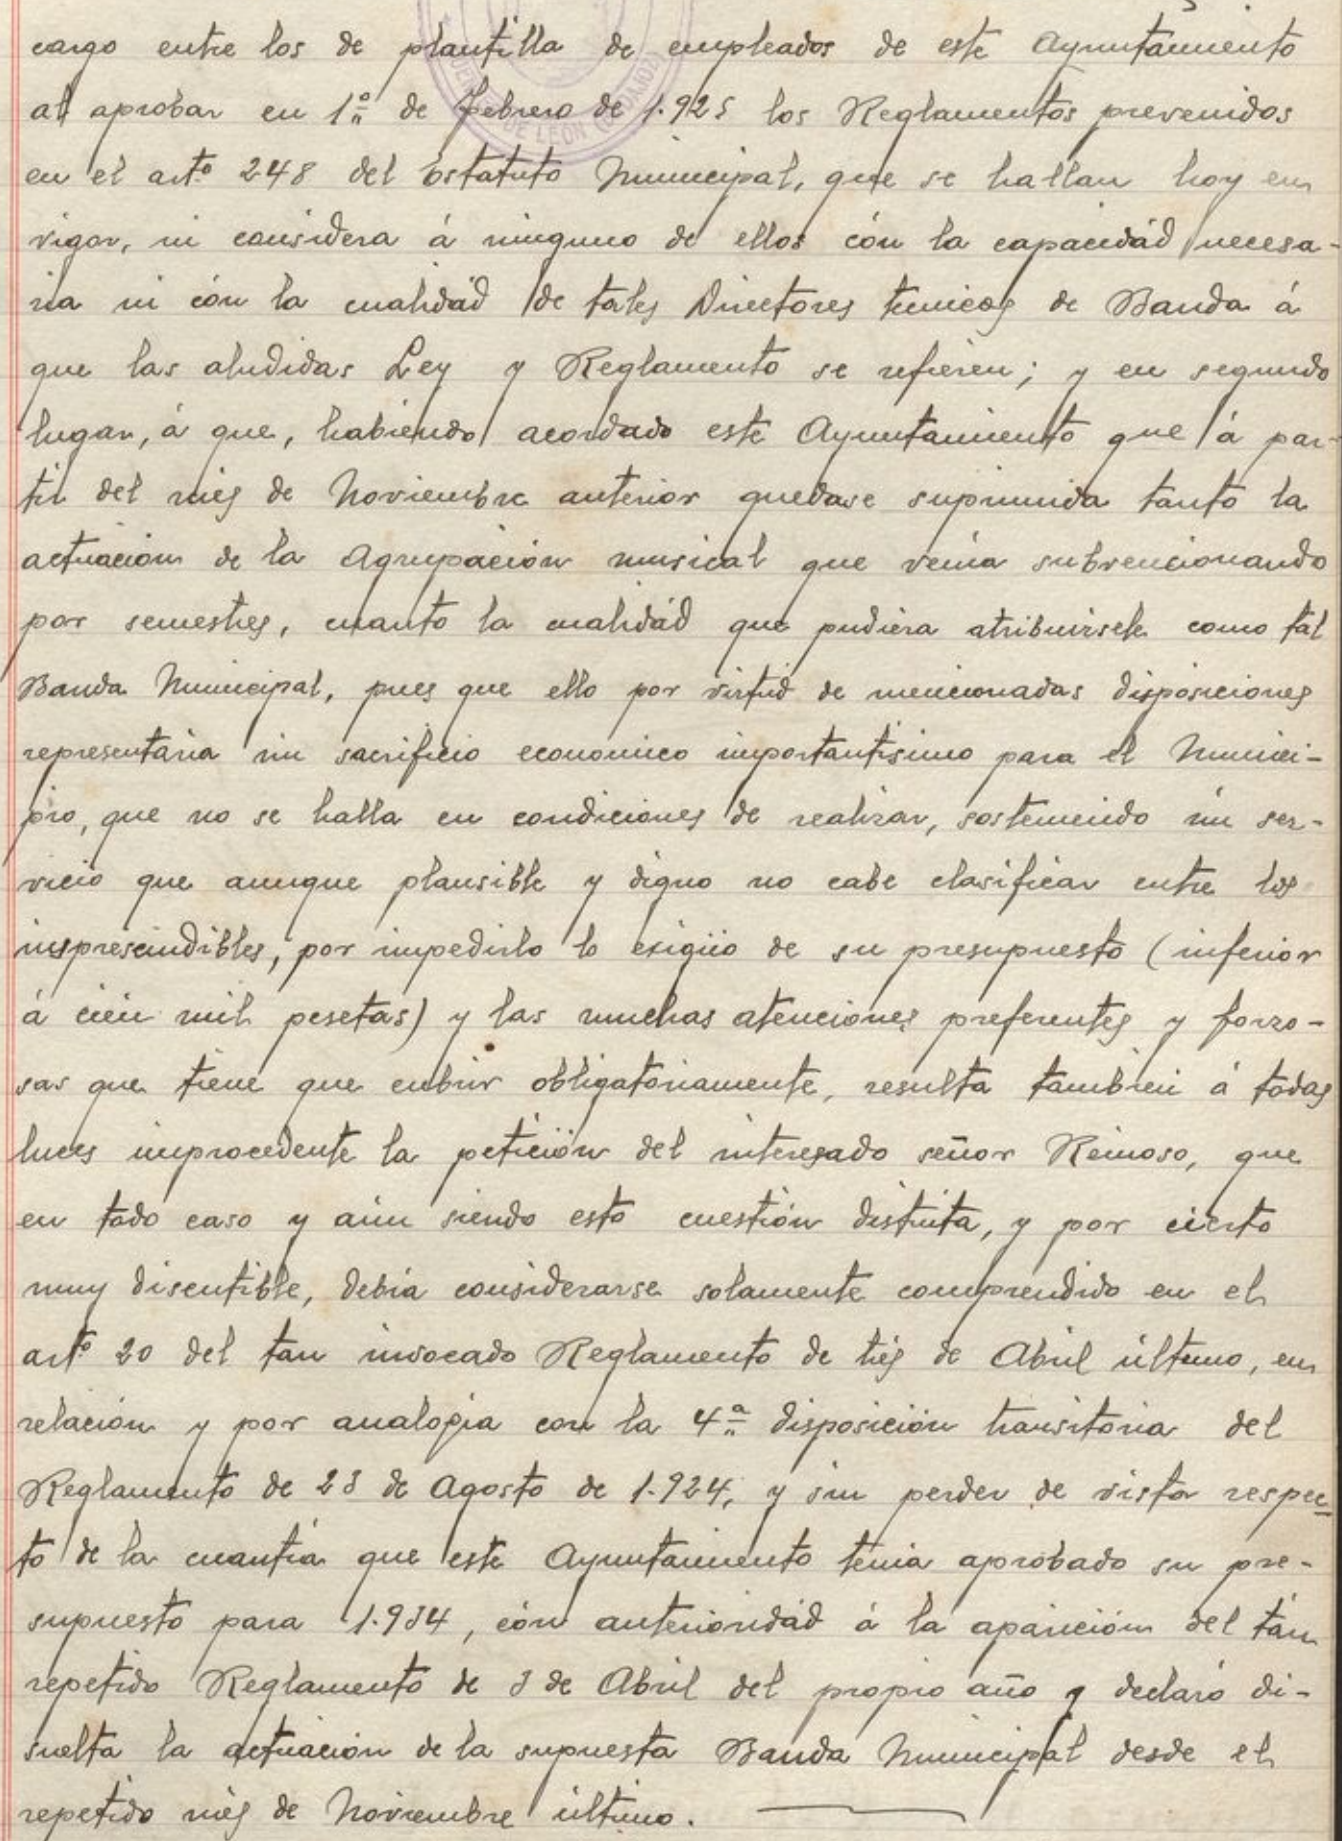 cargo entre los de plantilla de empleados de este Ayuntamiento
al aprobar en 1º de Febrero de 1.925 los Reglamentos prevenidos
en el artº 248 del Estatuto Municipal, que se hallan hoy en
vigor, ni considera á ninguno de ellos cón la capacidád necesa-
ria ni cón la cualidád de tales Directores tecnicos de Banda á
que las aludidas Ley y Reglamento se refieren; y en segundo
lugar, á que, habiendo acordado este Ayuntamiento que á par-
tir del més de Noviembre anterior quedase suprimida tanto la
actuación de la Agrupación musical que venia subvencionando
por semestres, cuanto la cualidád que pudiera atribuirsele como tal
Banda Municipal, pues que ello por virtud de mencionadas disposiciones
representaria un sacrificio economico importantisimo para el Munici-
pio, que no se halla en condiciones de realizar, sosteniendo un ser-
vicio que aunque plausible y digno no cabe clasificar entre los
insprescindibles, por impedirlo lo exigüo de su presupuesto (inferior
á cien mil pesetas) y las muchas atenciones preferentes y forzo-
sas que tiene que cubrir obligatoriamente, resulta tambien á todas
luces improcedente la petición del interesado señor Reinoso, que
en todo caso y aún siendo esto cuestión distinta, y por cierto
muy discutible, debia considerarse solamente comprendido en el
artº 20 del tan invocado Reglamento de trés de Abril último, en
relación y por analogia con la 4ª disposición transitoria del
Reglamento de 23 de Agosto de 1.924, y sin perder de vista respec-
to de la cuantia que este Ayuntamiento tenia aprobado su pre-
supuesto para 1.934, cón anterioridád á la aparición del tán
repetido Reglamento de 3 de Abril del propio año y declaró di-
suelta la actuación de la supuesta Banda Municipal desde el
repetido més de Noviembre último.